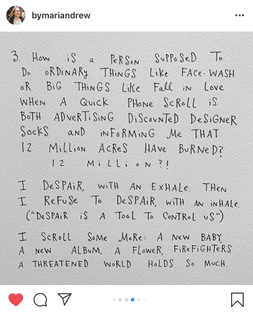 bymariandrew
3. How is a Person Supposed To
Do ordinary Things Like Face-wash
or Big Things Like Fall in Love
when a Quick Phone Scroll is
Both Advertising Discounted Designer
Socks and informing me that
12 Million Acres Have Burned?
12 Million?!
I Despair, with an Exhale. Then
I Refuse To Despair, with an inhale.
("Despair is a Tool to Control us")
I Scroll Some More: A New Baby,
A new Album, A Flower, Firefighters
A Threatened World Holds So Much.